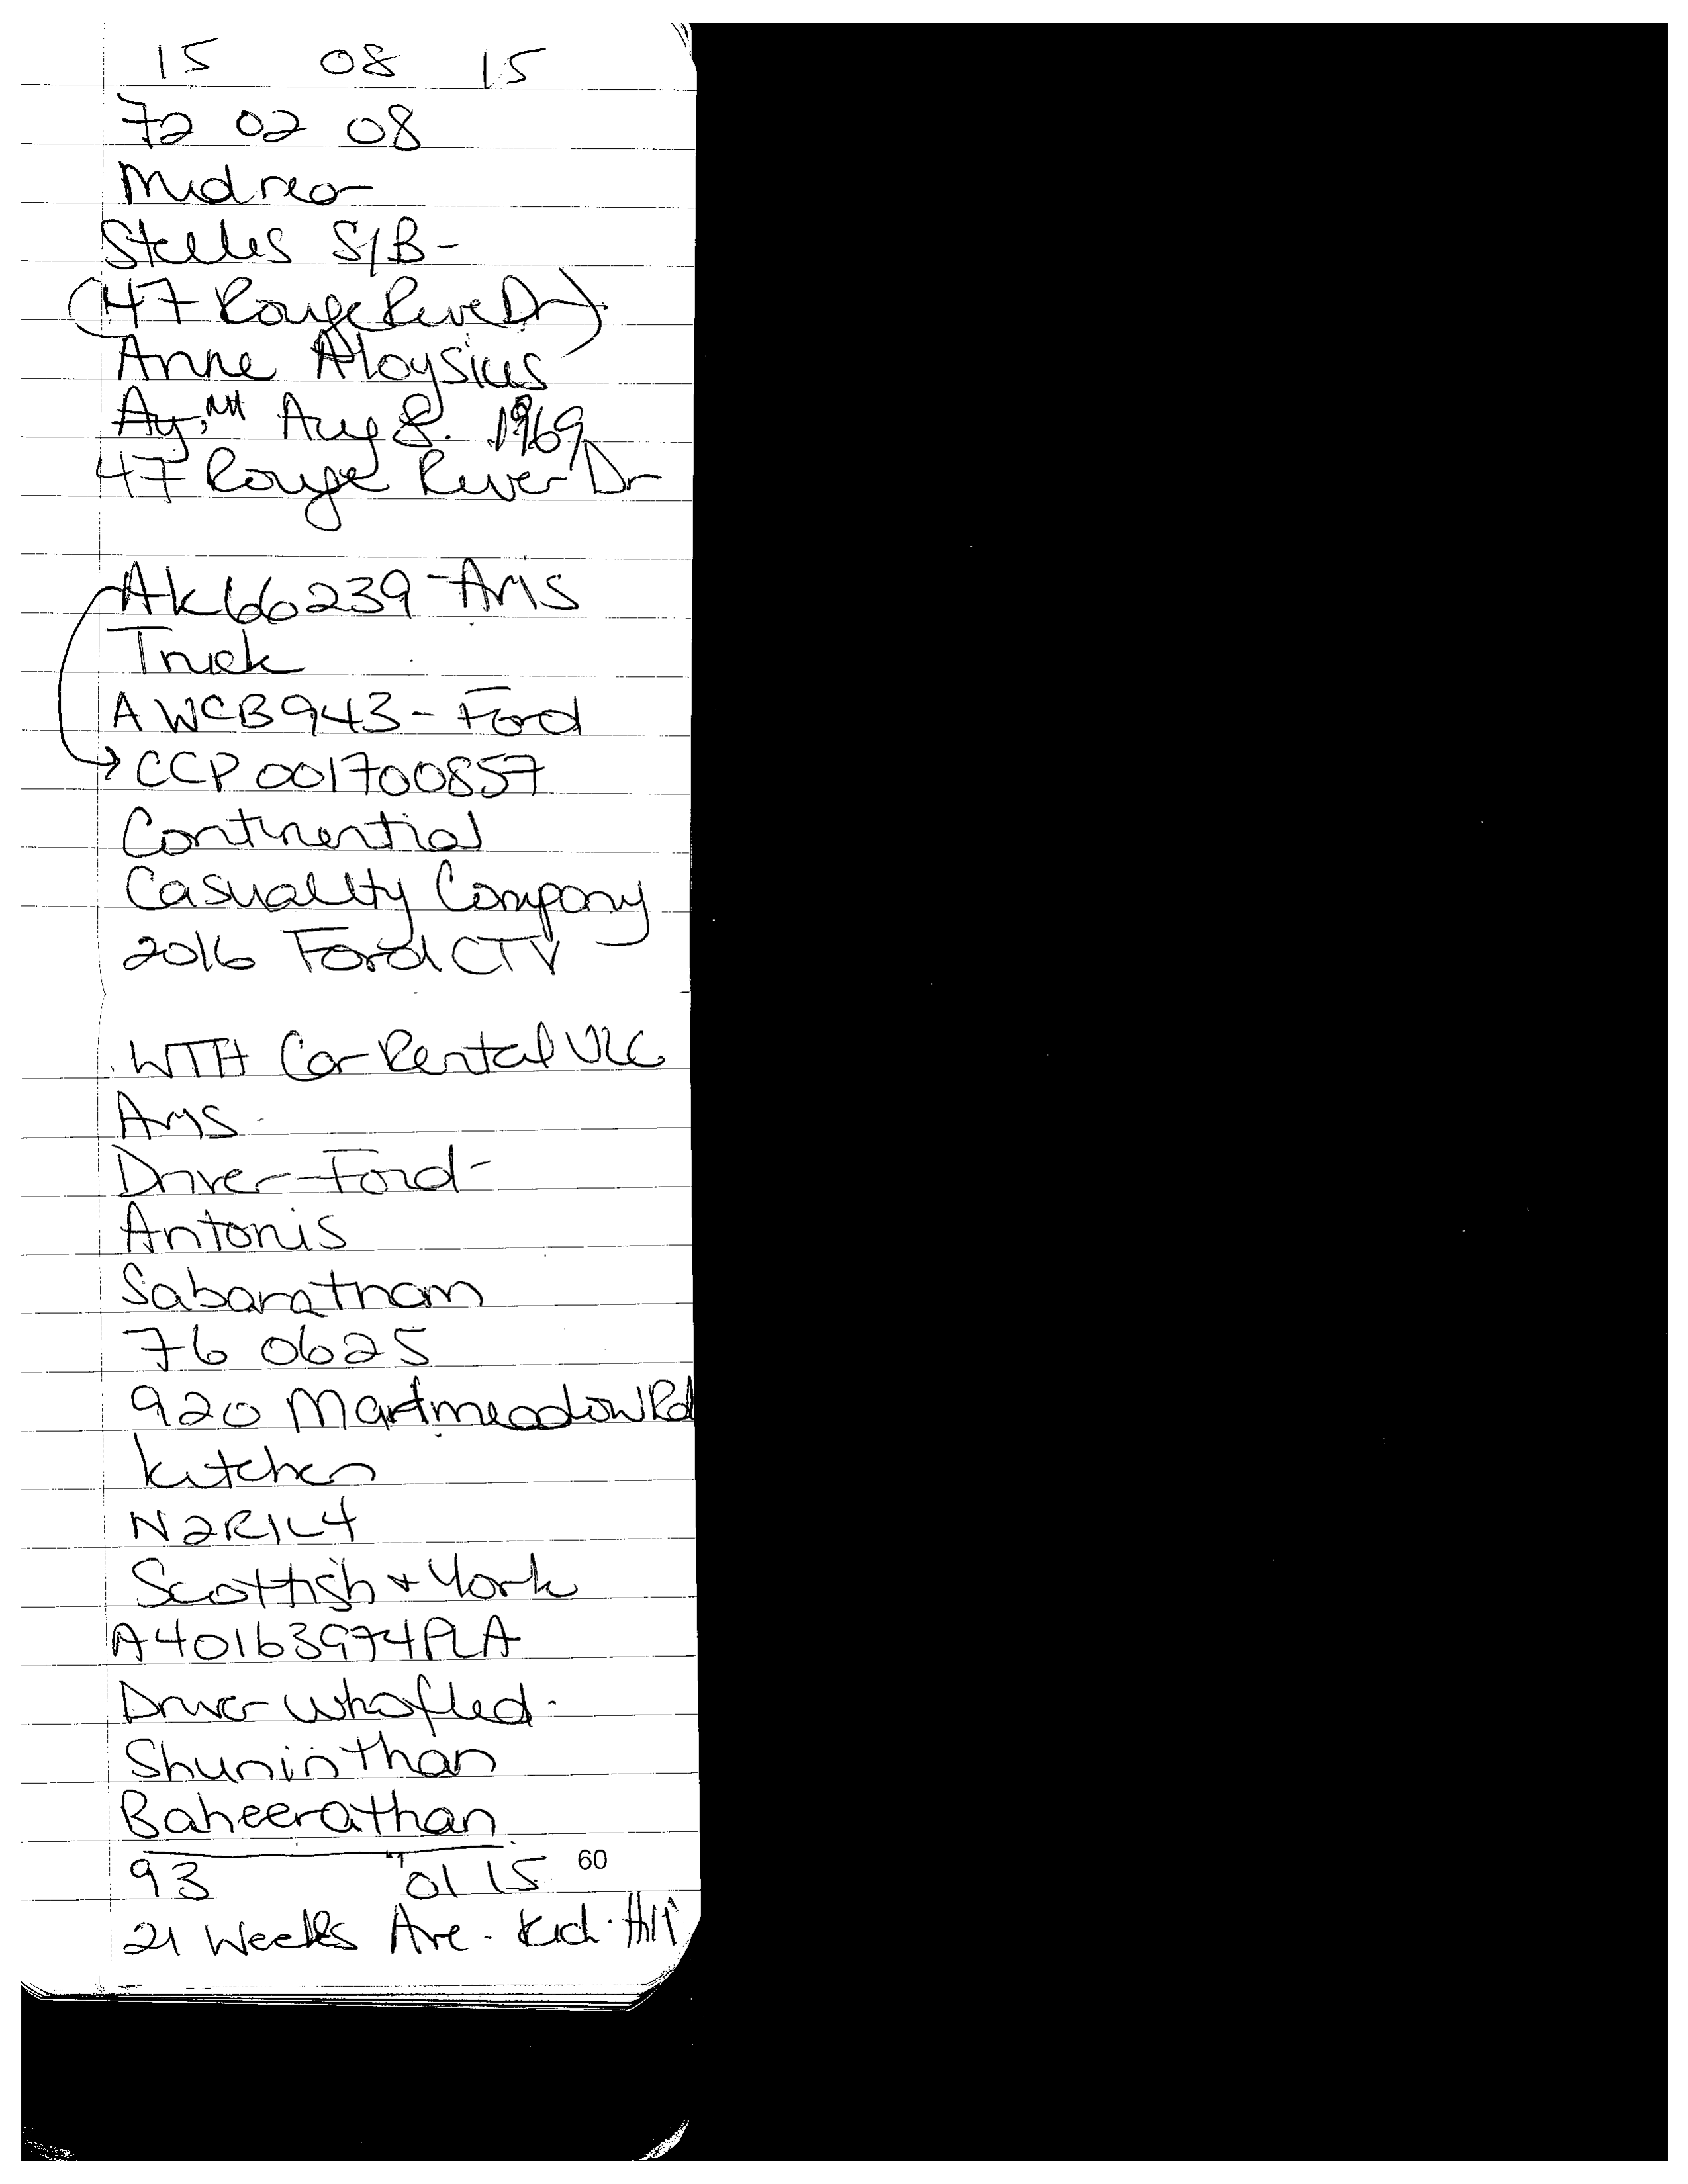 15 08 15
72 02 08
Midneo
Steeles S/B -
(47 Rouge River Dr)
Anne Aloysius
Aug 8. 1969
47 Rouge River Dr
AK66239 - AMS
Truck
AWCB943 - Ford
CCP 001700857
Continential
Casuality Company
2016 Ford CTV
WTH Car Rental ULC
AMS.
Driver - Ford -
Antonis
Sabaratnam
76 0625
920 Meadow Rd
Kitchen
N2R1L4
Scottish + York
A40163974PLA
Driver who fled -
Shuninthan
Baheerathan
93 01 15
60
21 Weeks Ave -